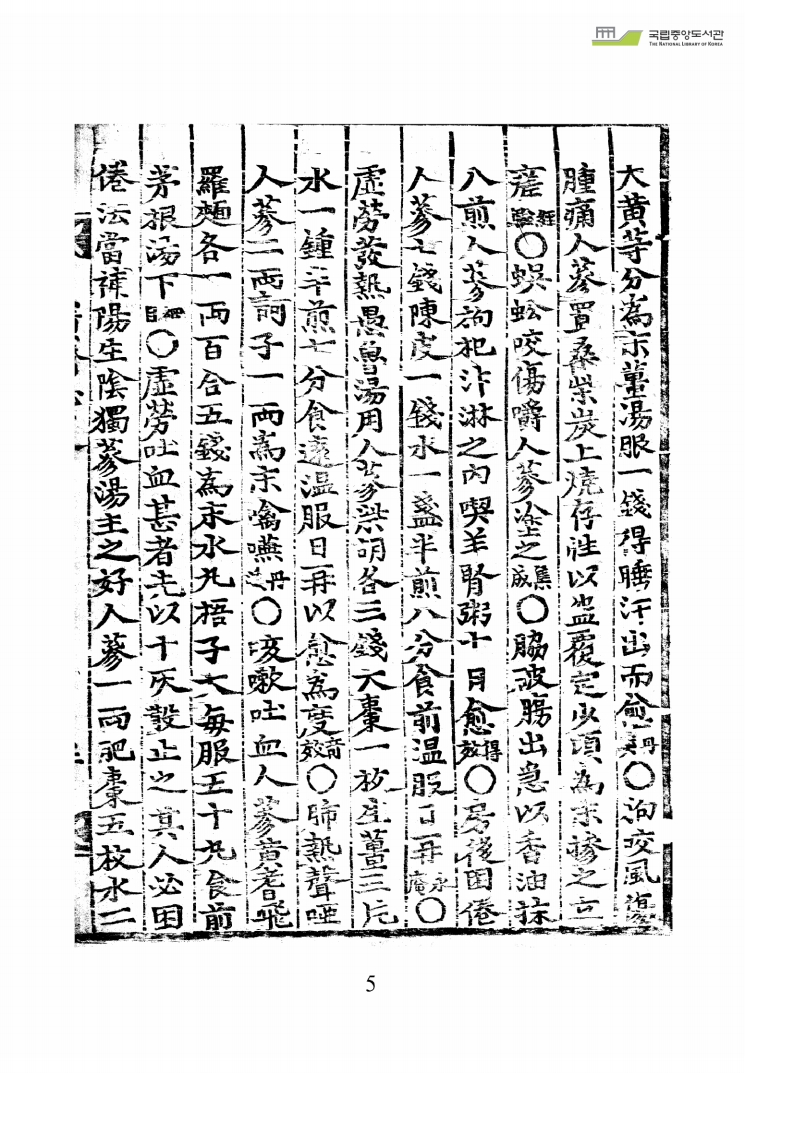 국립중앙도서관
THE NATIONAL LIBRARY OF KOREA
大黃等分爲末薑湯服一錢得睡汗出而愈丹㺯○狗咬風傷
腫痛人蔘置桑柴炭上燒存性以盌覆定少頃爲末摻之立
瘥經驗○蜈蚣咬傷嚼人蔘塗之集成○脇破膓出急以香油抹
入煎人蔘枸杞汁淋之內喫羊腎粥十日愈得效○房後困倦
人蔘七錢陳皮一錢水一盞半煎八分食前溫服日再永庵○
虛勞發熱愚魯湯用人蔘柴胡各三錢大棗一枚生薑三片
水一鍾半煎七分食遠溫服日再以愈爲度奇效○肺熱聲啞
人蔘二兩訶子一兩爲末噙嚥丹○咳嗽吐血人蔘黃耆飛
羅麵各一兩百合五錢爲末水丸梧子大每服五十丸食前
茅根湯下綱目○虛勞吐血甚者先以十灰散止之其人必困
倦法當補陽生陰獨蔘湯主之好人蔘一兩肥棗五枚水二
5